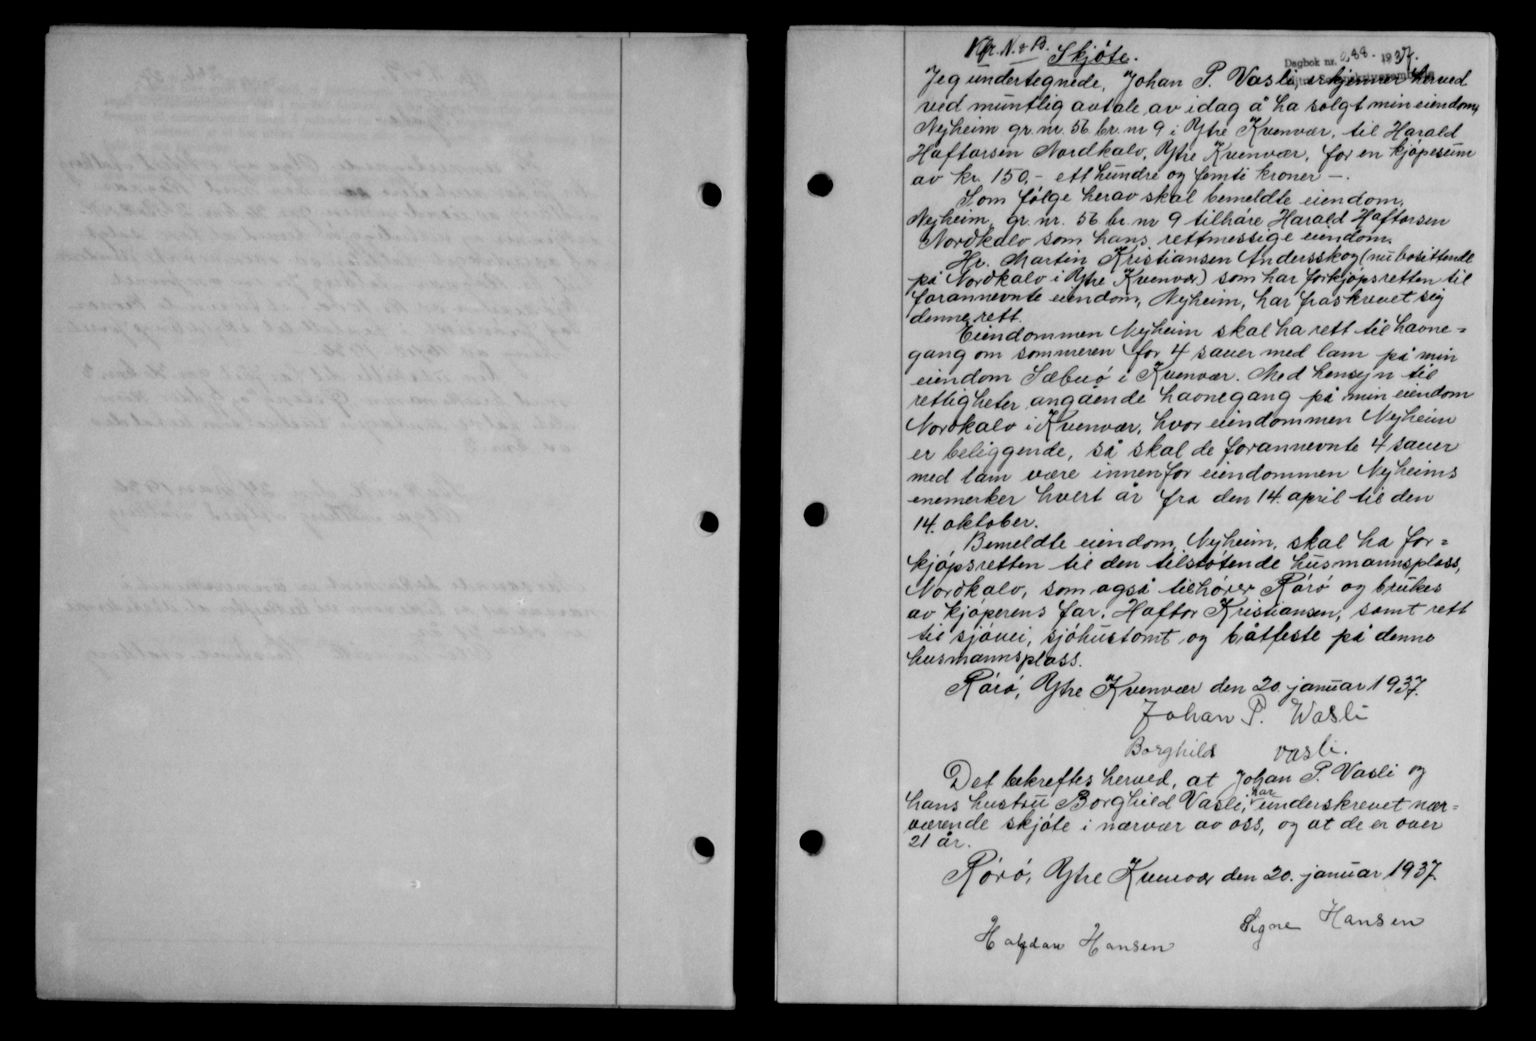 Skjøte.
Dagbok nr. 288. 1937.
Jeg undertegnede, Johan P. Vasli, erkjenner herved
ved muntlig avtale av idag å ha solgt min eiendom,
Nyheim gr. nr. 56 br. nr 9 i Ytre Kvenvær, til Harald
Haftorsen Nordkalv, Ytre Kvenvær, for en kjøpesum
av kr. 150,- ett hundre og femti kroner -.
Som følge herav skal bemeldte eiendom,
Nyheim, gr. nr. 56 br. nr 9 tilhøre Harald Haftorsen
Nordkalv som hans rettmessige eiendom.
Hr. Martin Kristiansen Andersskog (nu bosittende
på Nordkalv i Ytre Kvenvær) som har forkjøpsretten til
forannevnte eiendom, Nyheim, har fraskrevet sig
denne rett.
Eiendommen Nyheim skal ha rett til havne=
gang om sommeren for 4 sauer med lam på min
eiendom Sæbuø i Kvenvær. Med hensyn til
rettigheter angående havnegang på min eiendom
Nordkalv i Kvenvær, hvor eiendommen Nyheim
er beliggende, så skal de forannevnte 4 sauer
med lam være innenfor eiendommen Nyheims
enemerker hvert år fra den 14. april til den
14. oktober.
Bemeldte eiendom, Nyheim, skal ha for=
kjøpsretten til den tilstøtende husmannsplass,
Nordkalv, som også tilhører Rørø og brukes
av kjøperens far, Haftor Kristiansen, samt rett
til sjøvei, sjøhustomt og båtfeste på denne
husmannsplass.
Rørø, Ytre Kvenvær den 20. januar 1937.
Johan P. Wasli
Borghild Vasli.
Det bekreftes herved, at Johan P. Vasli og
hans hustru Borghild Vasli, har underskrevet nær=
værende skjøte i nærvær av oss, og at de er over
21 år.
Rørø, Ytre Kvenvær den 20. januar 1937.
Halfdan Hansen Signe Hansen